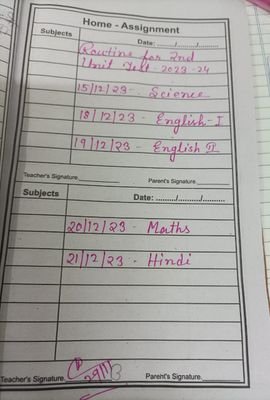 Home - Assignment
Subjects
Date: ......./......./..........
Routine for 2nd
Unit Test - 2023-24
15/12/23 - Science
18/12/23 - English-I
19/12/23 - English II
Teacher's Signature.
Parent's Signature.
Subjects
Date: ........./........../..........
20/12/23 - Maths
21/12/23 - Hindi
Teacher's Signature.
Parent's Signature.